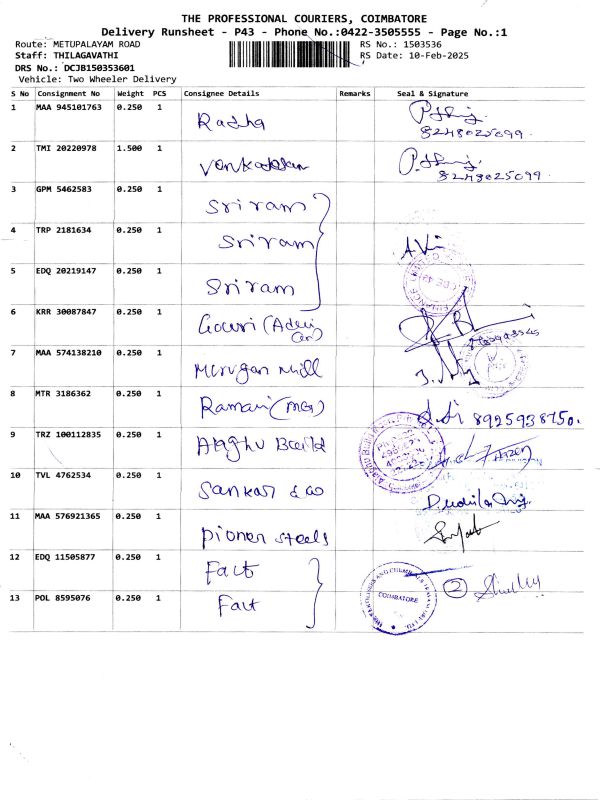 THE PROFESSIONAL COURIERS, COIMBATORE
Delivery Runsheet - P43 - Phone No.:0422-3505555 - Page No.:1
Route: METUPALAYAM ROAD RS No.: 1503536
Staff: THILAGAVATHI RS Date: 10-Feb-2025
DRS No.: DCJB150353601
Vehicle: Two Wheeler Delivery
S No Consignment No Weight PCS Consignee Details Remarks Seal & Signature
1 MAA 945101763 0.250 1 Radha
8248025099.
2 TMI 20220978 1.500 1
8248025099.
3 GPM 5462583 0.250 1 Sriram
4 TRP 2181634 0.250 1 Sriram
5 EDQ 20219147 0.250 1 Sriram
6 KRR 30087847 0.250 1 Gowri
7 MAA 574138210 0.250 1 Murugan Mill
8 MTR 3186362 0.250 1 Raman 8925938750.
9 TRZ 100112835 0.250 1 Build
10 TVL 4762534 0.250 1 Sankar & co
11 MAA 576921365 0.250 1 Pioner Steels
12 EDQ 11505877 0.250 1 Fact
13 POL 8595076 0.250 1 Fact
COIMBATORE
2